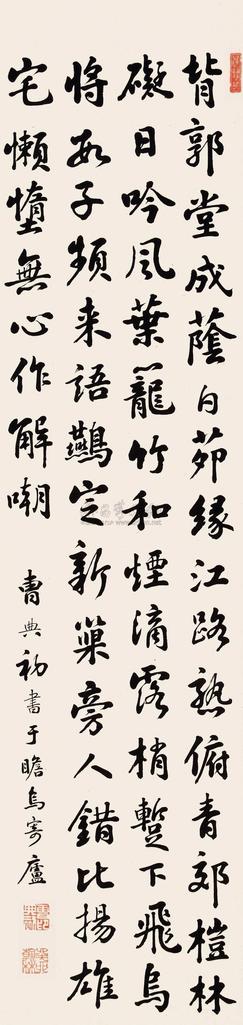 背郭堂成蔭白茆緣江路熟俯青郊榿林
礙日吟風葉籠竹和煙滴露梢蹔下飛烏
將數子頻來語鷰定新巢旁人錯比揚雄
宅懶墮無心作解嘲
曹典初書于瞻烏寄廬